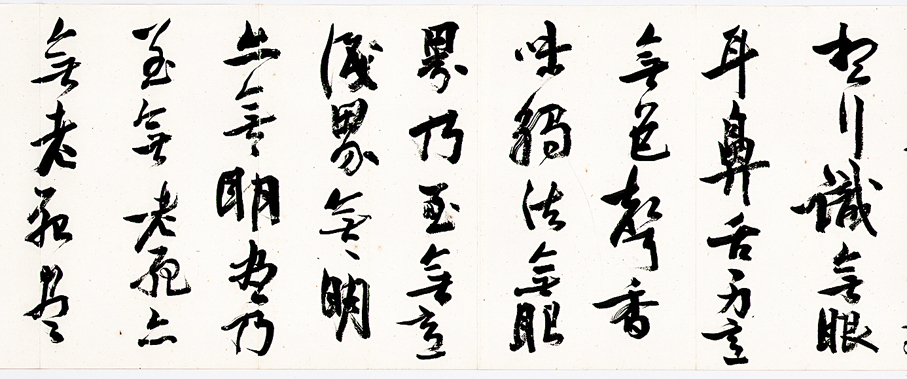 想行識無眼
耳鼻舌身意
無色聲香
味觸法無眼
界乃至無意
識界無々明
亦無々明盡乃
至無老死亦
無老死盡